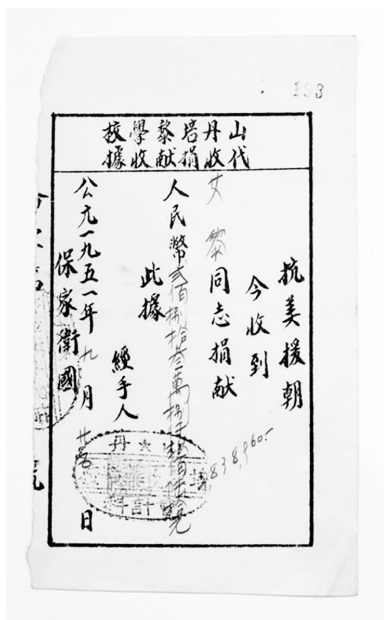 山丹培黎學校
代收捐献收據
抗美援朝
今收到
艾黎同志捐献
人民幣貳佰捌拾叁萬捌仟玖佰陸拾元
838,960.-
此據
經手人
公元一九五一年九月日
保家衛國